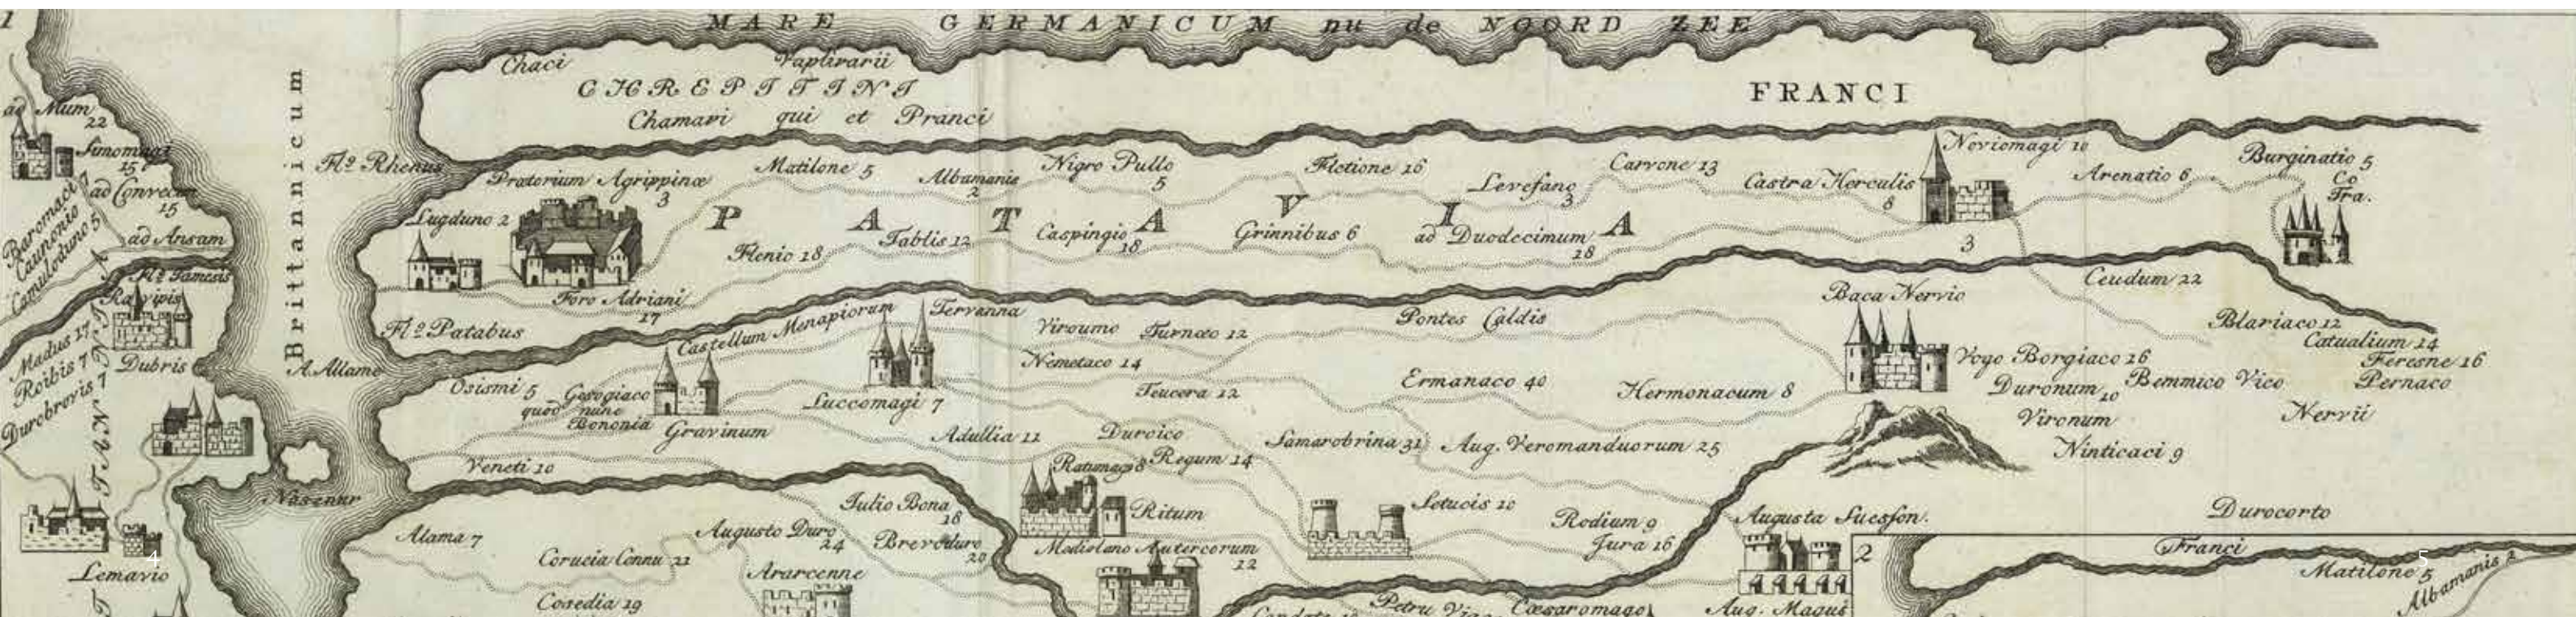 1
MARE GERMANICUM nu de NOORD ZEE
Chaci
Vaplivarii
CHREPITINI
Chamavi qui et Pranci
FRANCI
Brittannicum
ad Mum
22
Simomagi
15
ad Convecin
15
Baromaci
Caunonio
Camuloduno 5
ad Ansam
Flº Tamesis
Ratvipis
Madus 17
Roibis 7
Durobrovis 7
Dubris
Lemavio
4
Flº Rhenus
Prætorium Agrippinæ
3
Matilone 5
Albamanis
2
Nigro Pullo
5
Fletione 16
Levefano
3
Carvone 13
Castra Herculis
8
Noviomagi 10
Arenatio 6
Burginatio 5
Co
Tra.
Lugduno 2
PATAVIA
Flenio 18
Tablis 12
Caspingio
18
Grinnibus 6
ad Duodecimum
18
3
Foro Adriani
17
Flº Patabus
A. Allamo
Castellum Menapiorum
Tervanna
Viroumo
Turnæo 12
Pontes Caldis
Baca Nervio
Ceudum 22
Blariaco 12
Catualium 14
Feresne 16
Pernaco
Nemetaco 14
Osismi 5
Gesogiaco
quod nunc
Bononia
Gravinum
Luccomagi 7
Teucera 12
Ermanaco 40
Hermonacum 8
Vogo Borgiaco 26
Duronum 10
Bemmico Vico
Vironum
Nervii
Ninticaci 9
Adullia 11
Duroico
Regum 14
Samarobrina 31
Aug. Veromanduorum 25
Veneti 10
Ratumagi 8
Ritum
Setucis 10
Rodium 9
Jura 16
Augusta Suesson.
Durocorto
Alama 7
Julio Bona
18
Augusto Duro
24
Brevoduro
20
Corucia Connu 21
Ararcenne
Cosedia 19
Mediolano Autercorum
12
Petru Vi
Cæsaromago
Aug. Magus
2
Franci
5
Matilone 5
Albamanis 2